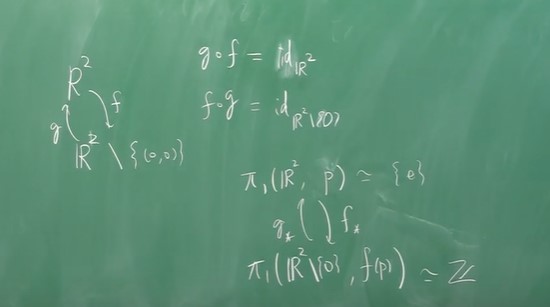 ℝ²
g f
ℝ² \ {(0,0)}
g∘f = id_ℝ²
f∘g = id_ℝ²\{0}
π₁(ℝ², p) ≃ {e}
g_* f_*
π₁(ℝ²\{0}, f(p)) ≃ ℤ